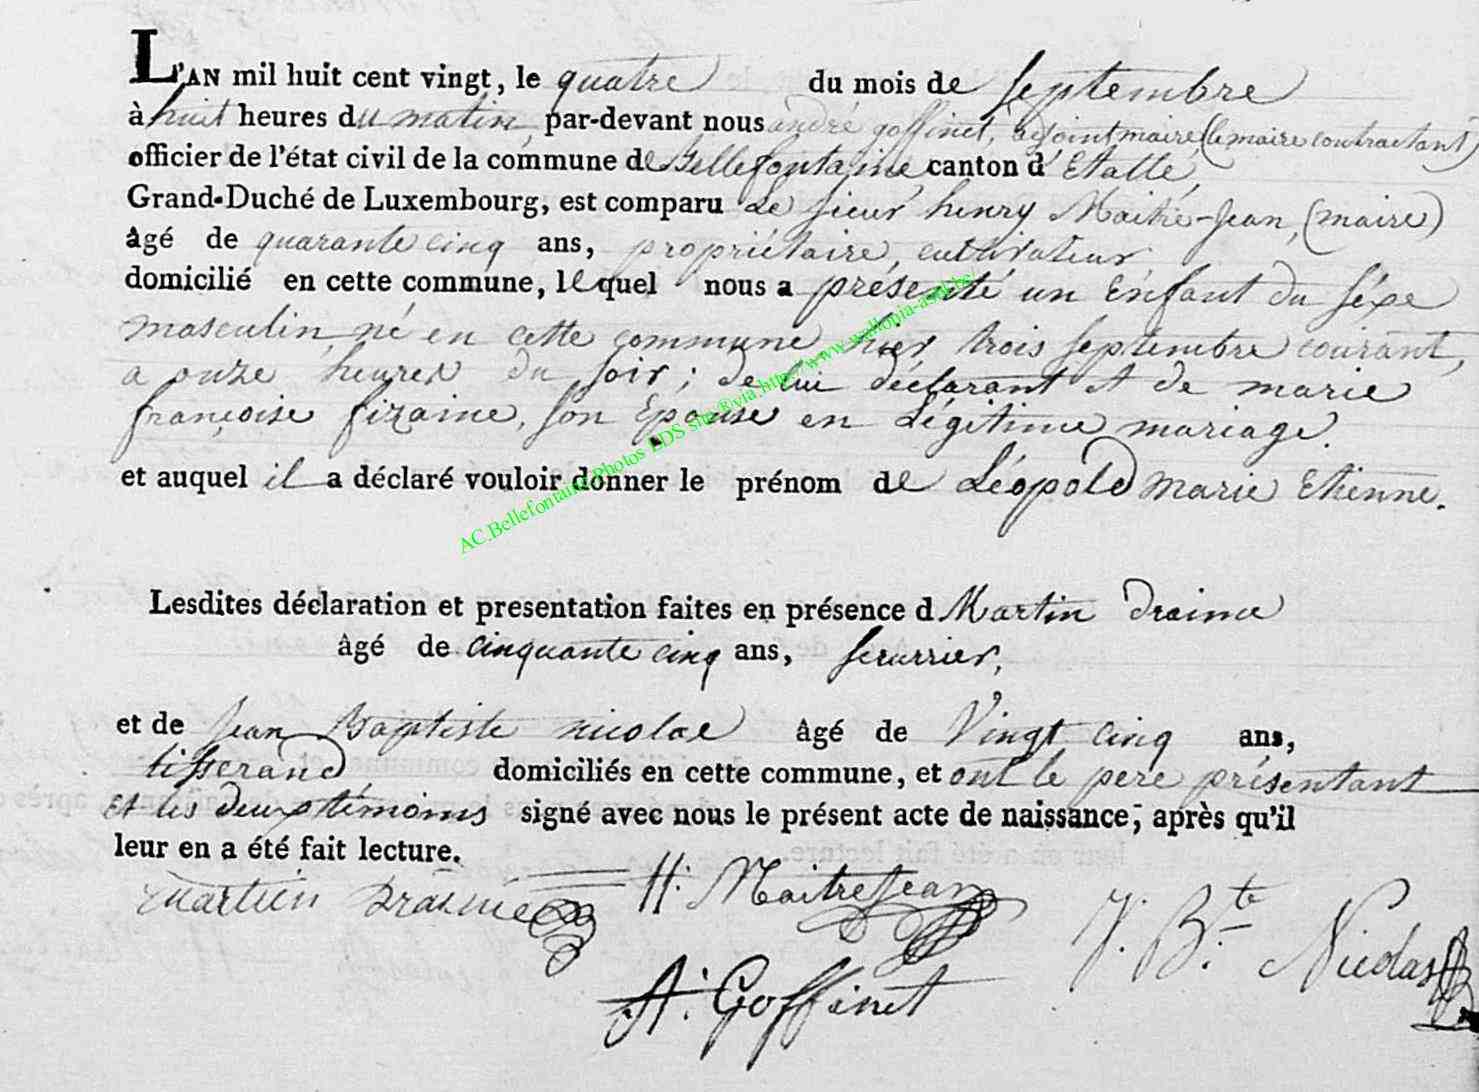 L'AN mil huit cent vingt, le quatre du mois de Septembre
à huit heures du matin, par-devant nous andré goffinet, adjoint maire (le maire contractant)
officier de l'état civil de la commune de Bellefontaine canton d'Etalle,
Grand-Duché de Luxembourg, est comparu Le Sieur henry Maitre-Jean, (maire)
âgé de quarante cinq ans, propriétaire, cultivateur
domicilié en cette commune, lequel nous a présenté un Enfant du Séxe
masculin, né en cette commune hier, trois Septembre courant,
a onze heures du soir; de lui déclarant et de marie
françoise fizaine, Son Epouse en Légitime mariage.
et auquel il a déclaré vouloir donner le prénom de Léopold marie Etienne.
AC.Bellefontaine Photos LDS site ®via http://www.wallopia-asbl.be/
Lesdites déclaration et presentation faites en présence d Martin Draime
âgé de cinquante cinq ans, serurrier,
et de Jean Baptiste nicolas âgé de Vingt cinq ans,
tisserand domiciliés en cette commune, et ont le pere présentant
et les deux témoins signé avec nous le présent acte de naissance, après qu'il
leur en a été fait lecture.
Martin Draime H: MaitreJean J. B.te Nicolas
A: Goffinet